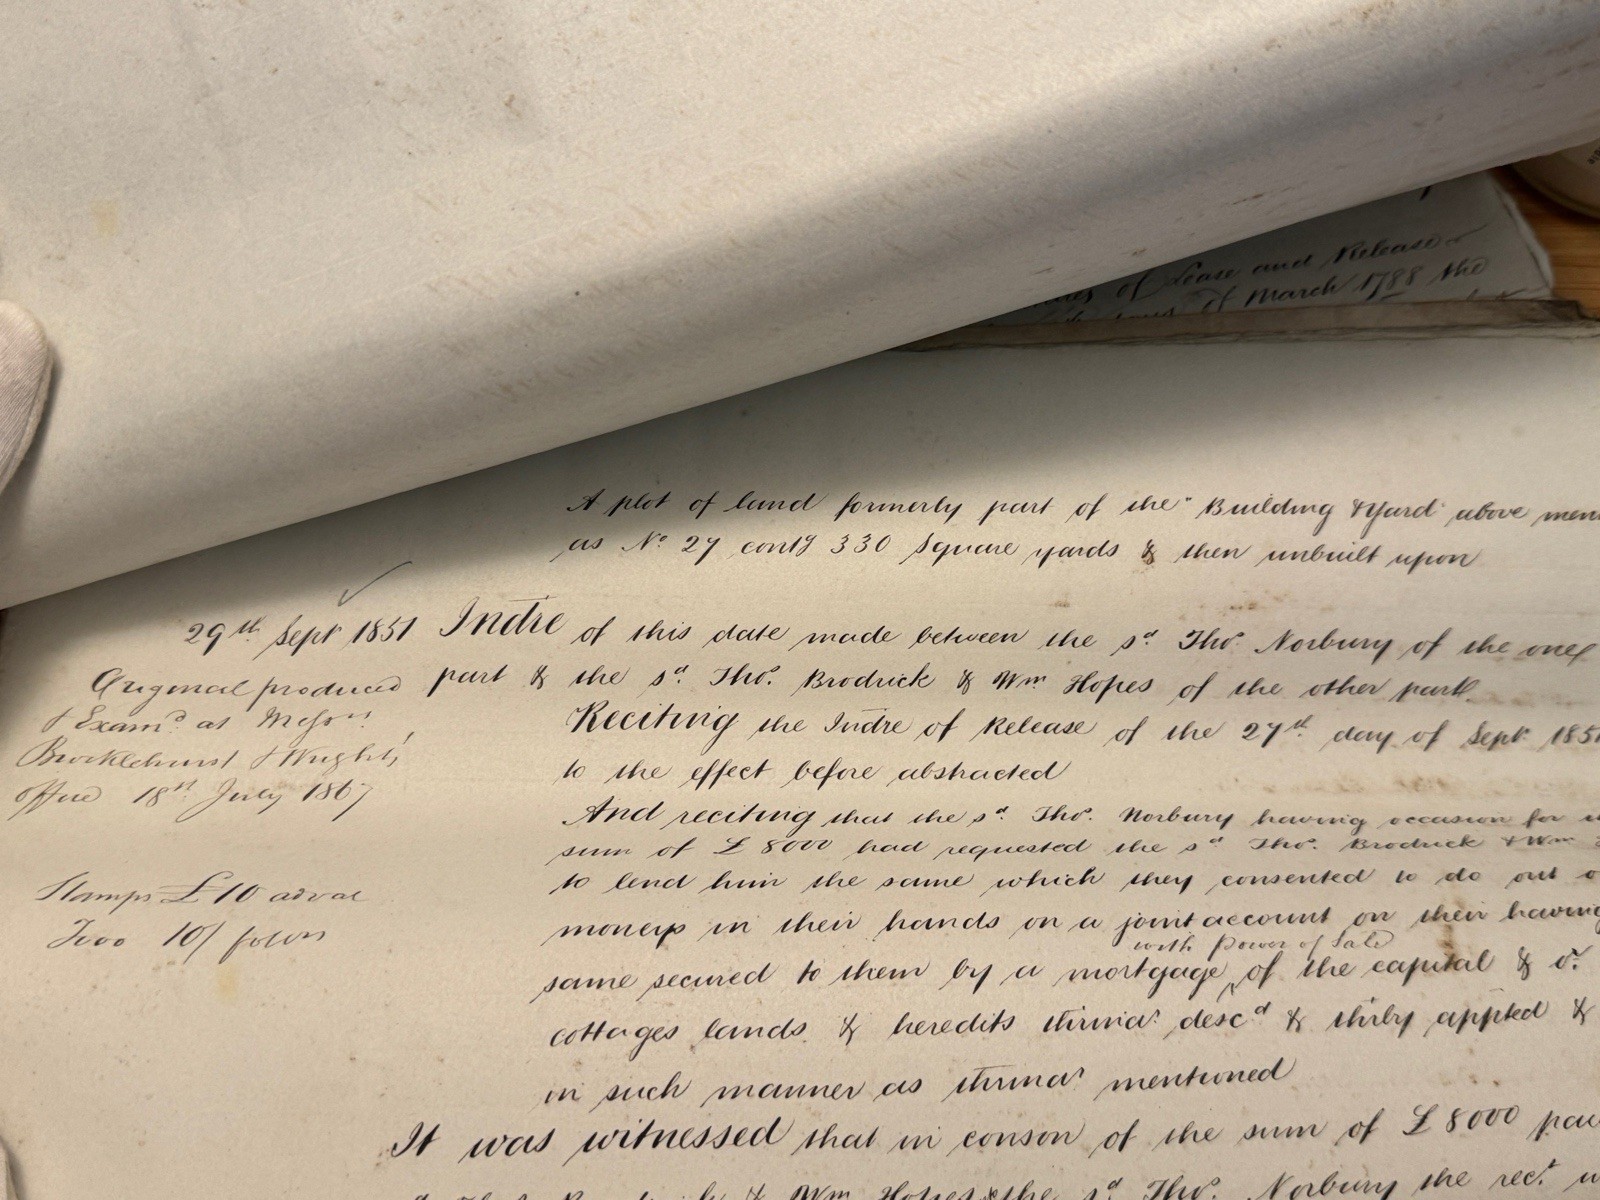 of Lease and Release
of March 1788 the
A plot of land formerly part of the "Building & Yard" above
as No. 27 contg 330 Square yards & then unbuilt upon
29th Sept 1851 Indre of this date made between the sd. Thos. Norbury of the one
part & the sd. Thos. Brodrick & Wm Hopes of the other part.
Original produced
& Examd. at Messrs.
Brocklehurst & Wright's
office 18th July 1867
Reciting the Indre of Release of the 27th day of Sept 185
to the effect before abstracted
And reciting that the sd. Thos. Norbury having occasion for
sum of £8000 had requested the sd Thos. Brodrick & Wm
to lend him the same which they consented to do out
moneys in their hands on a joint account on their having
with power of Sale
same secured to them by a mortgage ^ of the capital & or.
cottages lands & heredits thrinar. descd & thrby appted &
in such manner as thrinar mentioned
Stamps £10 adval
Two 10/ folors
It was witnessed that in conson of the sum of £8000
& Wm Hopes the sd. Thos. Norbury the rect.